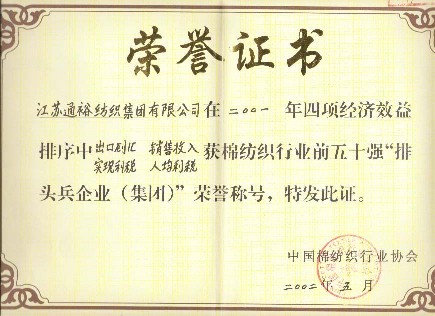 荣誉证书
江苏通裕纺织集团有限公司在二〇〇一年四项经济效益
排序中出口创汇 销售收入 实现利税 人均利税 获棉纺织行业前五十强“排
头兵企业（集团）”荣誉称号，特发此证。
中国棉纺织行业协会
二〇〇二年五月